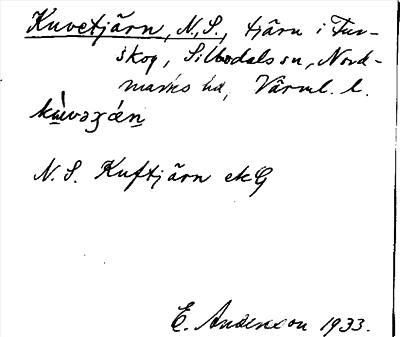 Kuvetjärn, N., S., tjärn i Fur-
skog, Silbodals sn, Nord-
marks hd, Värml. l.
N. S. Kuftjärn ekG
E. Andersson 1933.